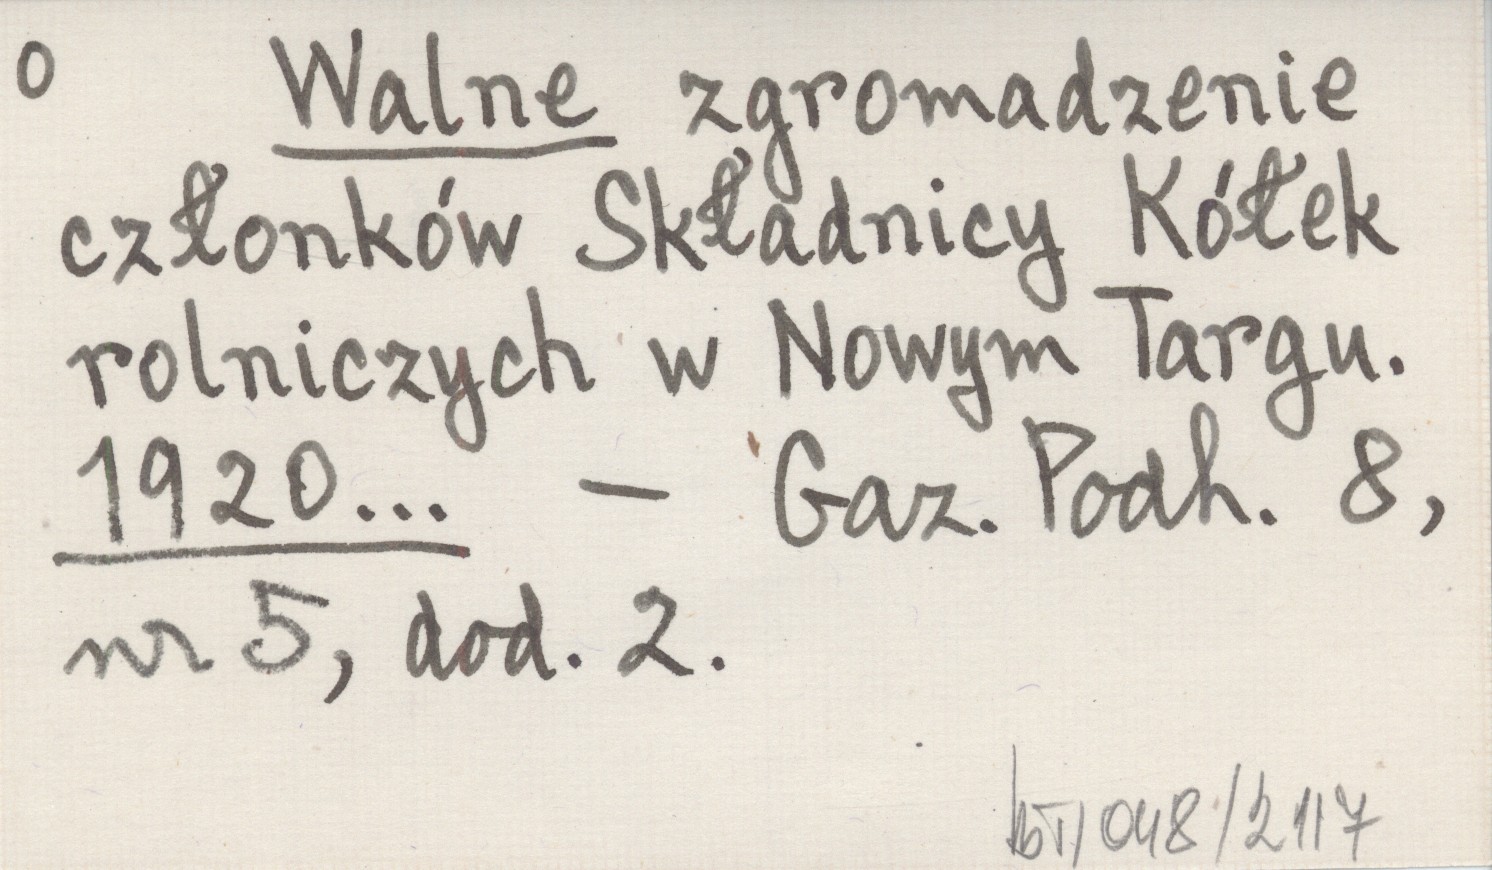 o Walne zgromadzenie
członków Składnicy Kółek
rolniczych w Nowym Targu.
1920... — Gaz. Podh. 8,
nr 5, dod. 2.
/048/2117